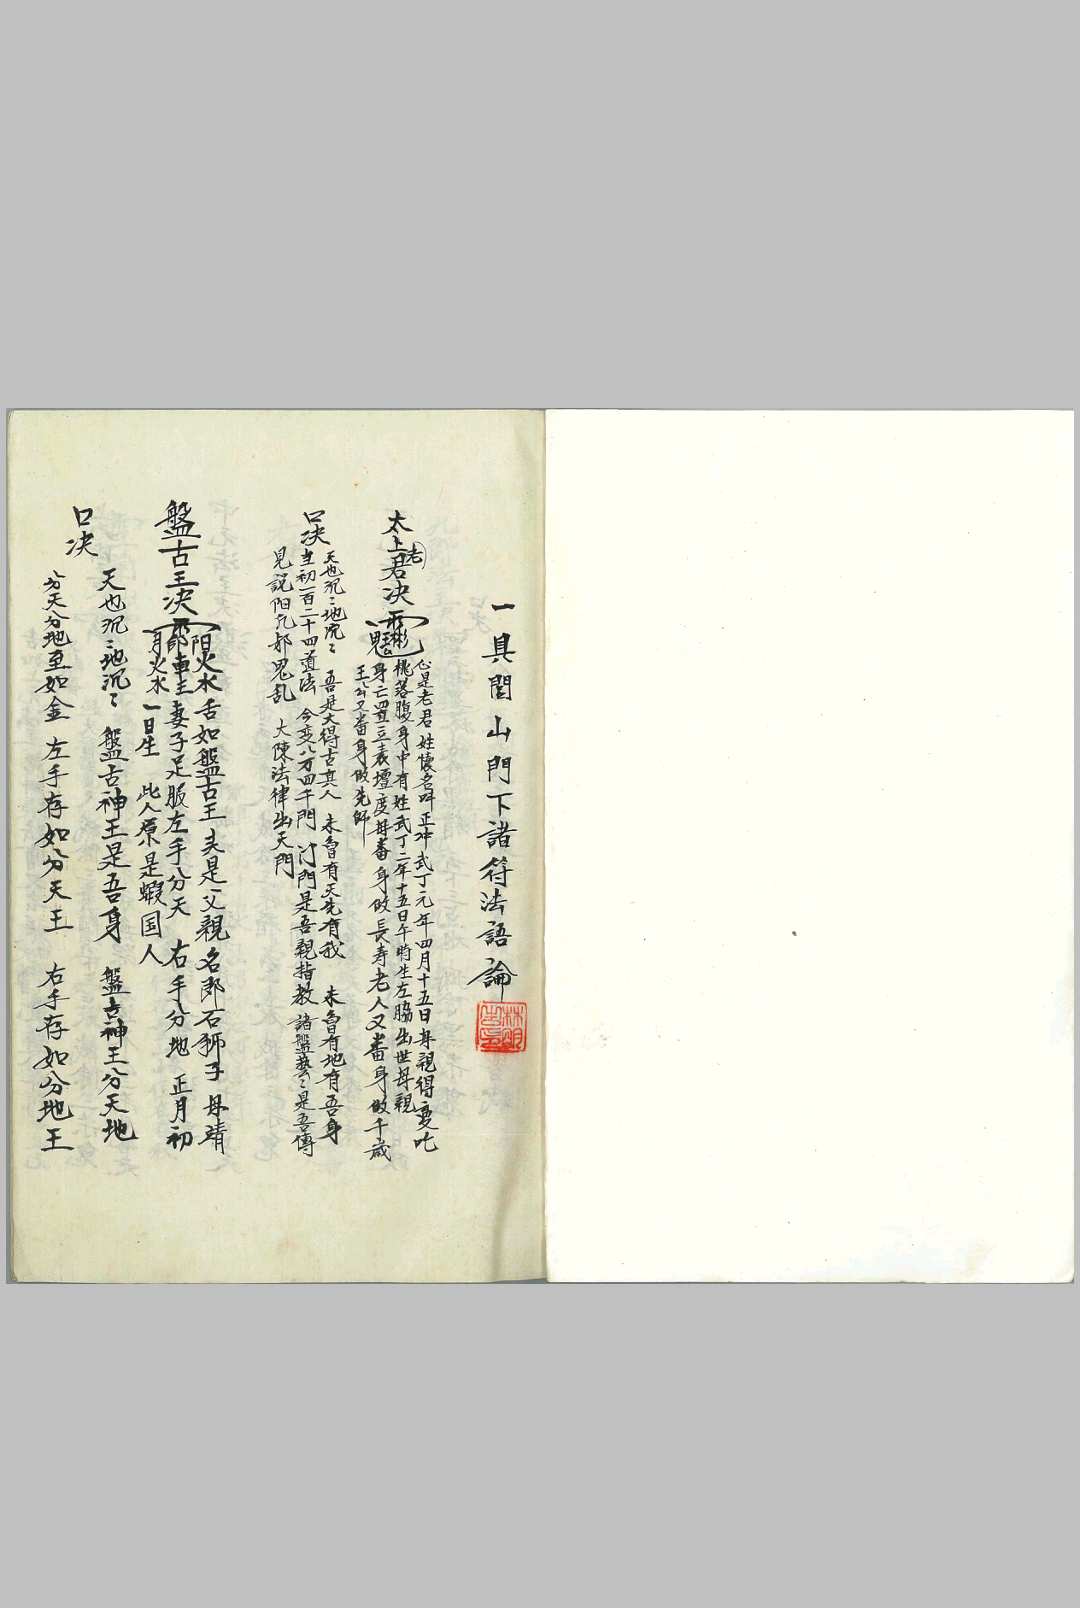 一具閭山門下諸符法語論
太上老君决
心是老君 姓懷名叫正冲 武丁元年四月十五日 母親得变吃
桃落腹身中有 姓武丁二年十五日午時生左脇出世母親
身亡 置立表壇 度母番身做長寿老人 又番身做千歲
王公又番身做先師
口决 天也沉沉地沉沉 吾是大得古真人 未魯有天先有我 未魯有地有吾身
当初一百二十四道法 今变八万四千門 门門是吾親指教 諸盤藝藝是吾傳
見説阳九邪鬼乱 大陳法律出天門
盤古王决
阳火水 舌如盤古王 夫是父親名郎石獅子 母靖
妻子足服左手分天 右手分地 正月初
月火水 一日生 此人原是蝦国人
口决 天也沉沉地沉沉 盤古神王是吾身 盤古神王分天地
分天分地至如金 左手存如分天王 右手存如分地王